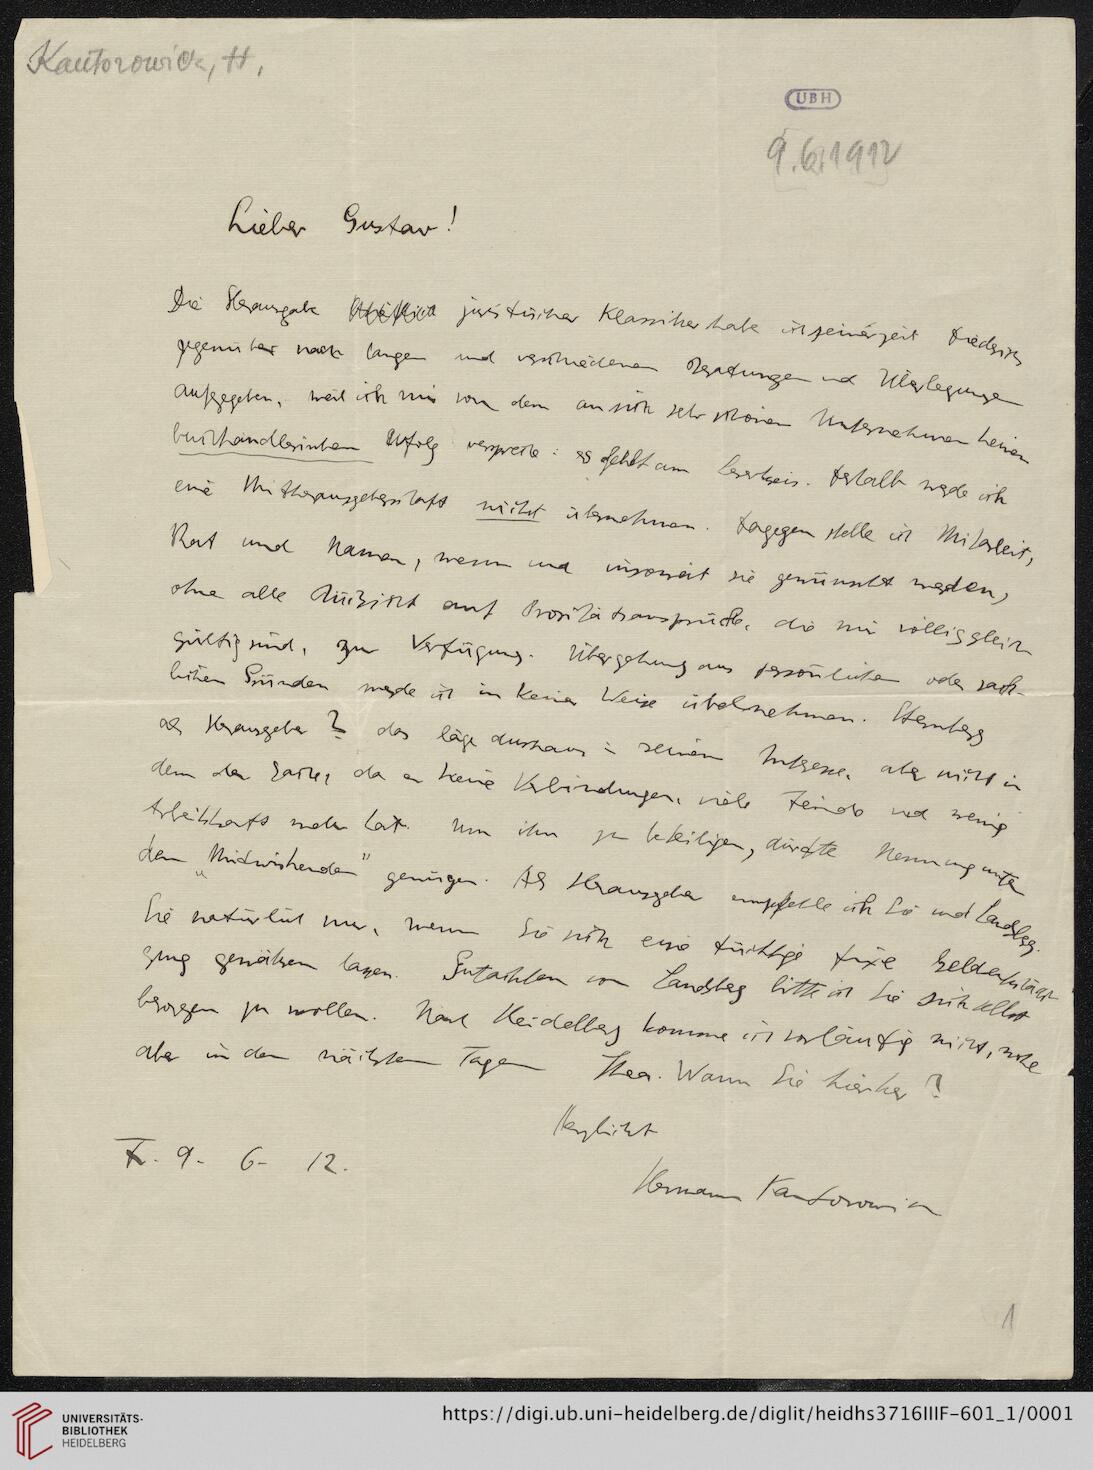 Kantorowicz, H.
UBH
9.6.1912
Lieber Gustav!
Die Herausgabe juristischer Klassiker habe ich seinerzeit Friedrich
gegenüber nach langen und verschiedenen Beratungen und Überlegungen
aufgegeben, weil ich mir von dem an sich sehr schönen Unternehmen keinen
buchhändlerischen Erfolg verspreche: es fehlt am Leserkreis. Deshalb werde ich
eine Mitherausgeberschaft nicht übernehmen. Dagegen stelle ich Mitarbeit,
Rat und Namen, wenn und insoweit sie gewünscht werden,
ohne alle Rücksicht auf Prioritätsansprüche, die mir völlig gleich
gültig sind, zur Verfügung. Übergehung aus persönlichen oder sach-
lichen Gründen werde ich in keiner Weise übelnehmen. Sternberg
als Herausgeber? das läge durchaus in seinem Interesse, aber nicht in
dem der Sache, da er keine Verbindungen, viele Feinde und wenig
Arbeitskraft mehr hat. Um ihn zu beteiligen, dürfte Nennung unter
den „Mitwirkenden" genügen. Als Herausgeber empfehle ich Sie und Landsberg.
Sie natürlich nur, wenn Sie sich eine tüchtige fixe Geldentschädi-
gung gewähren lassen. Gutachten von Landsberg bitte ich Sie sich selbst
besorgen zu wollen. Nach Heidelberg komme ich vorläufig nicht,
aber in den nächsten Tagen Thea. Wann Sie hierher?
Herzlichst
F. 9. 6. 12.
Hermann Kantorowicz
1
UNIVERSITÄTS-
BIBLIOTHEK
HEIDELBERG
https://digi.ub.uni-heidelberg.de/diglit/heidhs3716IIIF-601_1/0001